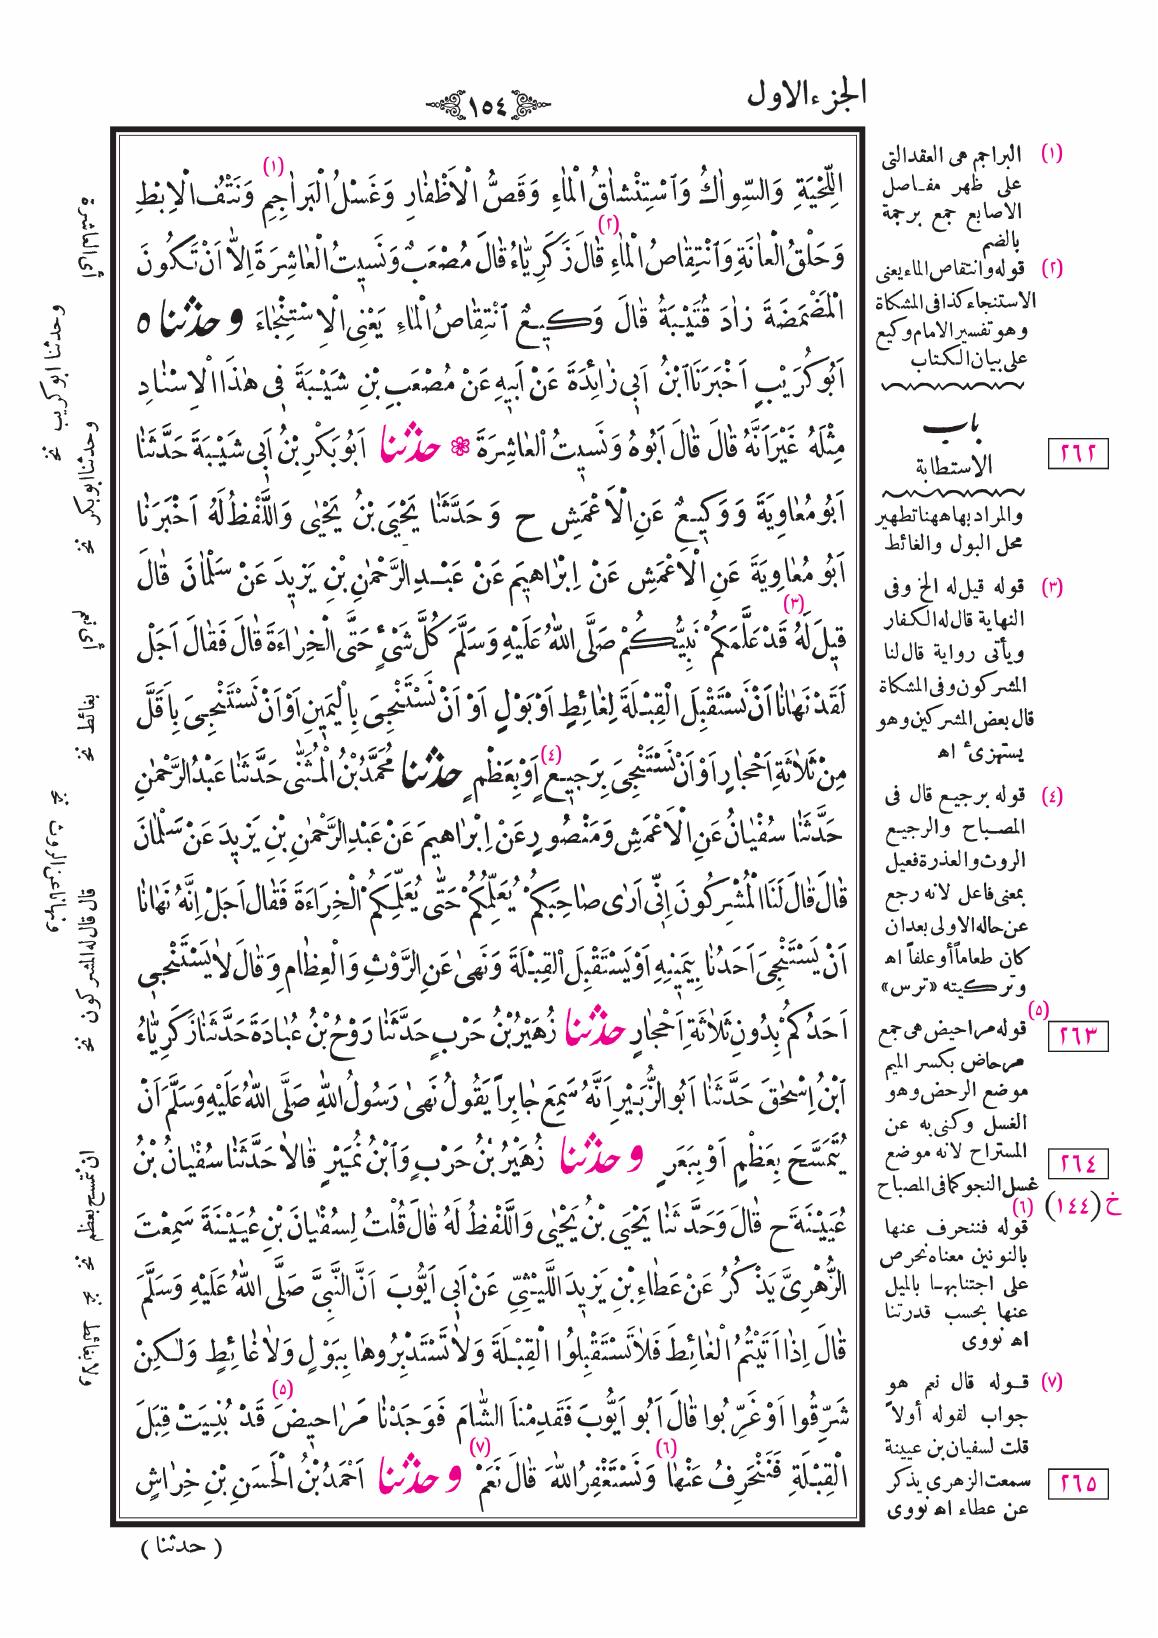 الجزء الاول
١٥٤
اللِّحْيَةِ وَالسِّواكُ وَاسْتِنْشاقُ الْماءِ وَقَصُّ الْاَظْفارِ وَغَسْلُ الْبَراجِمِ (١) وَنَتْفُ الْاِبْطِ
وَحَلْقُ الْعانَةِ وَانْتِقاصُ الْماءِ (٢) قالَ زَكَرِيّاءُ قالَ مُصْعَبٌ وَنَسيتُ الْعاشِرَةَ اِلاّ اَنْ تَكُونَ
الْمَضْمَضَةَ زادَ قُتَيْبَةُ قالَ وَكيعٌ انْتِقاصُ الْماءِ يَعْنِى الْاِسْتِنْجاءَ وحدثناه
اَبُو كُرَيْبٍ اَخْبَرَنَا ابْنُ اَبى زائِدَةَ عَنْ اَبيهِ عَنْ مُصْعَبِ بْنِ شَيْبَةَ فى هٰذَا الْاِسْنادِ
مِثْلَهُ غَيْرَ اَنَّهُ قالَ قالَ اَبُوهُ وَنَسيتُ الْعاشِرَةَ ❁ حدثنا اَبُو بَكْرِ بْنُ اَبى شَيْبَةَ حَدَّثَنا
اَبُو مُعاوِيَةَ وَوَكيعٌ عَنِ الْاَعْمَشِ ح وَحَدَّثَنا يَحْيَى بْنُ يَحْيٰى وَاللَّفْظُ لَهُ اَخْبَرَنا
اَبُو مُعاوِيَةَ عَنِ الْاَعْمَشِ عَنْ اِبْراهيمَ عَنْ عَبْدِ الرَّحْمٰنِ بْنِ يَزيدَ عَنْ سَلْمانَ قالَ
قيلَ لَهُ (٣) قَدْ عَلَّمَكُمْ نَبِيُّكُمْ صَلَّى اللهُ عَلَيْهِ وَسَلَّمَ كُلَّ شَىْءٍ حَتَّى الْخِراءَةَ قالَ فَقالَ اَجَلْ
لَقَدْ نَهانا اَنْ نَسْتَقْبِلَ الْقِبْلَةَ لِغائِطٍ اَوْ بَوْلٍ اَوْ اَنْ نَسْتَنْجِىَ بِالْيَمينِ اَوْ اَنْ نَسْتَنْجِىَ بِاَقَلَّ
مِنْ ثَلاثَةِ اَحْجارٍ اَوْ اَنْ نَسْتَنْجِىَ بِرَجيعٍ (٤) اَوْ بِعَظْمٍ حدثنا مُحَمَّدُ بْنُ الْمُثَنّٰى حَدَّثَنا عَبْدُ الرَّحْمٰنِ
حَدَّثَنا سُفْيانُ عَنِ الْاَعْمَشِ وَمَنْصُورٍ عَنْ اِبْراهيمَ عَنْ عَبْدِ الرَّحْمٰنِ بْنِ يَزيدَ عَنْ سَلْمانَ
قالَ قالَ لَنَا الْمُشْرِكُونَ اِنّى اَرٰى صاحِبَكُمْ يُعَلِّمُكُمْ حَتّٰى يُعَلِّمَكُمْ الْخِراءَةَ فَقالَ اَجَلْ اِنَّهُ نَهانا
اَنْ يَسْتَنْجِىَ اَحَدُنا بِيَمينِهِ اَوْ يَسْتَقْبِلَ الْقِبْلَةَ وَنَهىٰ عَنِ الرَّوْثِ وَالْعِظامِ وَقالَ لا يَسْتَنْجى
اَحَدُكُمْ بِدُونِ ثَلاثَةِ اَحْجارٍ حدثنا زُهَيْرُ بْنُ حَرْبٍ حَدَّثَنا رَوْحُ بْنُ عُبادَةَ حَدَّثَنا زَكَرِيّاءُ
ابْنُ اِسْحٰقَ حَدَّثَنا اَبُو الزُّبَيْرِ اَنَّهُ سَمِعَ جابِراً يَقُولُ نَهىٰ رَسُولُ اللهِ صَلَّى اللهُ عَلَيْهِ وَسَلَّمَ اَنْ
يُتَمَسَّحَ بِعَظْمٍ اَوْ بِبَعَرٍ وحدثنا زُهَيْرُ بْنُ حَرْبٍ وَابْنُ نُمَيْرٍ قالا حَدَّثَنا سُفْيانُ بْنُ
عُيَيْنَةَ ح قالَ وَحَدَّثَنا يَحْيَى بْنُ يَحْيٰى وَاللَّفْظُ لَهُ قالَ قُلْتُ لِسُفْيانَ بْنِ عُيَيْنَةَ سَمِعْتَ
الزُّهْرِىَّ يَذْكُرُ عَنْ عَطاءِ بْنِ يَزيدَ اللَّيْثِىِّ عَنْ اَبى اَيُّوبَ اَنَّ النَّبِىَّ صَلَّى اللهُ عَلَيْهِ وَسَلَّمَ
قالَ اِذا اَتَيْتُمُ الْغائِطَ فَلا تَسْتَقْبِلُوا الْقِبْلَةَ وَلا تَسْتَدْبِرُوها بِبَوْلٍ وَلا غائِطٍ وَلٰكِنْ
شَرِّقُوا اَوْ غَرِّبُوا قالَ اَبُو اَيُّوبَ فَقَدِمْنَا الشّامَ فَوَجَدْنا مَراحيضَ (٥) قَدْ بُنِيَتْ قِبَلَ
الْقِبْلَةِ فَنَنْحَرِفُ عَنْها (٦) وَنَسْتَغْفِرُ اللهَ قالَ نَعَمْ (٧) وحدثنا اَحْمَدُ بْنُ الْحَسَنِ بْنِ خِراشٍ
( حدثنا )
(١) البراجم هى العقد التى
على ظهر مفاصل
الاصابع جمع برجمة
بالضم
(٢) قوله وانتقاص الماء يعنى
الاستنجاء كذا فى المشكاة
وهو تفسير الامام وكيع
على بيان الكتاب
باب
الاستطابة
٢٦٢
والمراد بها ههنا تطهير
محل البول والغائط
(٣) قوله قيل له الخ وفى
النهاية قال له الكفار
ويأتى رواية قال لنا
المشركون وفى المشكاة
قال بعض المشركين وهو
يستهزىء اه
(٤) قوله برجيع قال فى
المصباح والرجيع
الروث والعذرة فعيل
بمعنى فاعل لانه رجع
عن حاله الاولى بعد ان
كان طعاماً أو علفاً اه
وتركيته «ترس»
(٥) قوله مراحيض هى جمع
٢٦٣
مرحاض بكسر الميم
موضع الرحض وهو
الغسل وكنى به عن
المستراح لانه موضع
٢٦٤
غسل النجو كما فى المصباح
خ (١٤٤)
(٦) قوله فننحرف عنها
بالنونين معناه نحرص
على اجتنابها بالميل
عنها بحسب قدرتنا
اه نووى
(٧) قوله قال نعم هو
جواب لقوله أولاً
قلت لسفيان بن عيينة
سمعت الزهرى يذكر
٢٦٥
عن عطاء اه نووى
وحدثنا ابو كريب نخ
وحدثنا ابو بكر نخ
بغائط نخ
ونهانا عن الروث نخ
قال قال له المشركون نخ
ان نتمسح بعظم نخ
ولا بغائط نخ